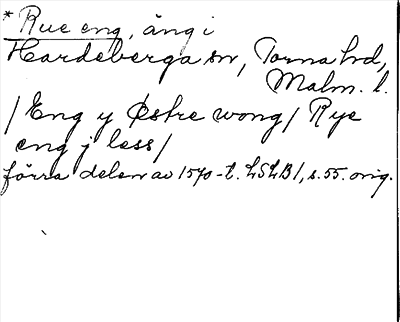 * Rue eng, äng i
Hardeberga sn, Torna hd,
Malm. l.
/Eng y Østre wong/ Rye
eng j less/
förra delen av 1570-t. LSLB1, s. 55. orig.